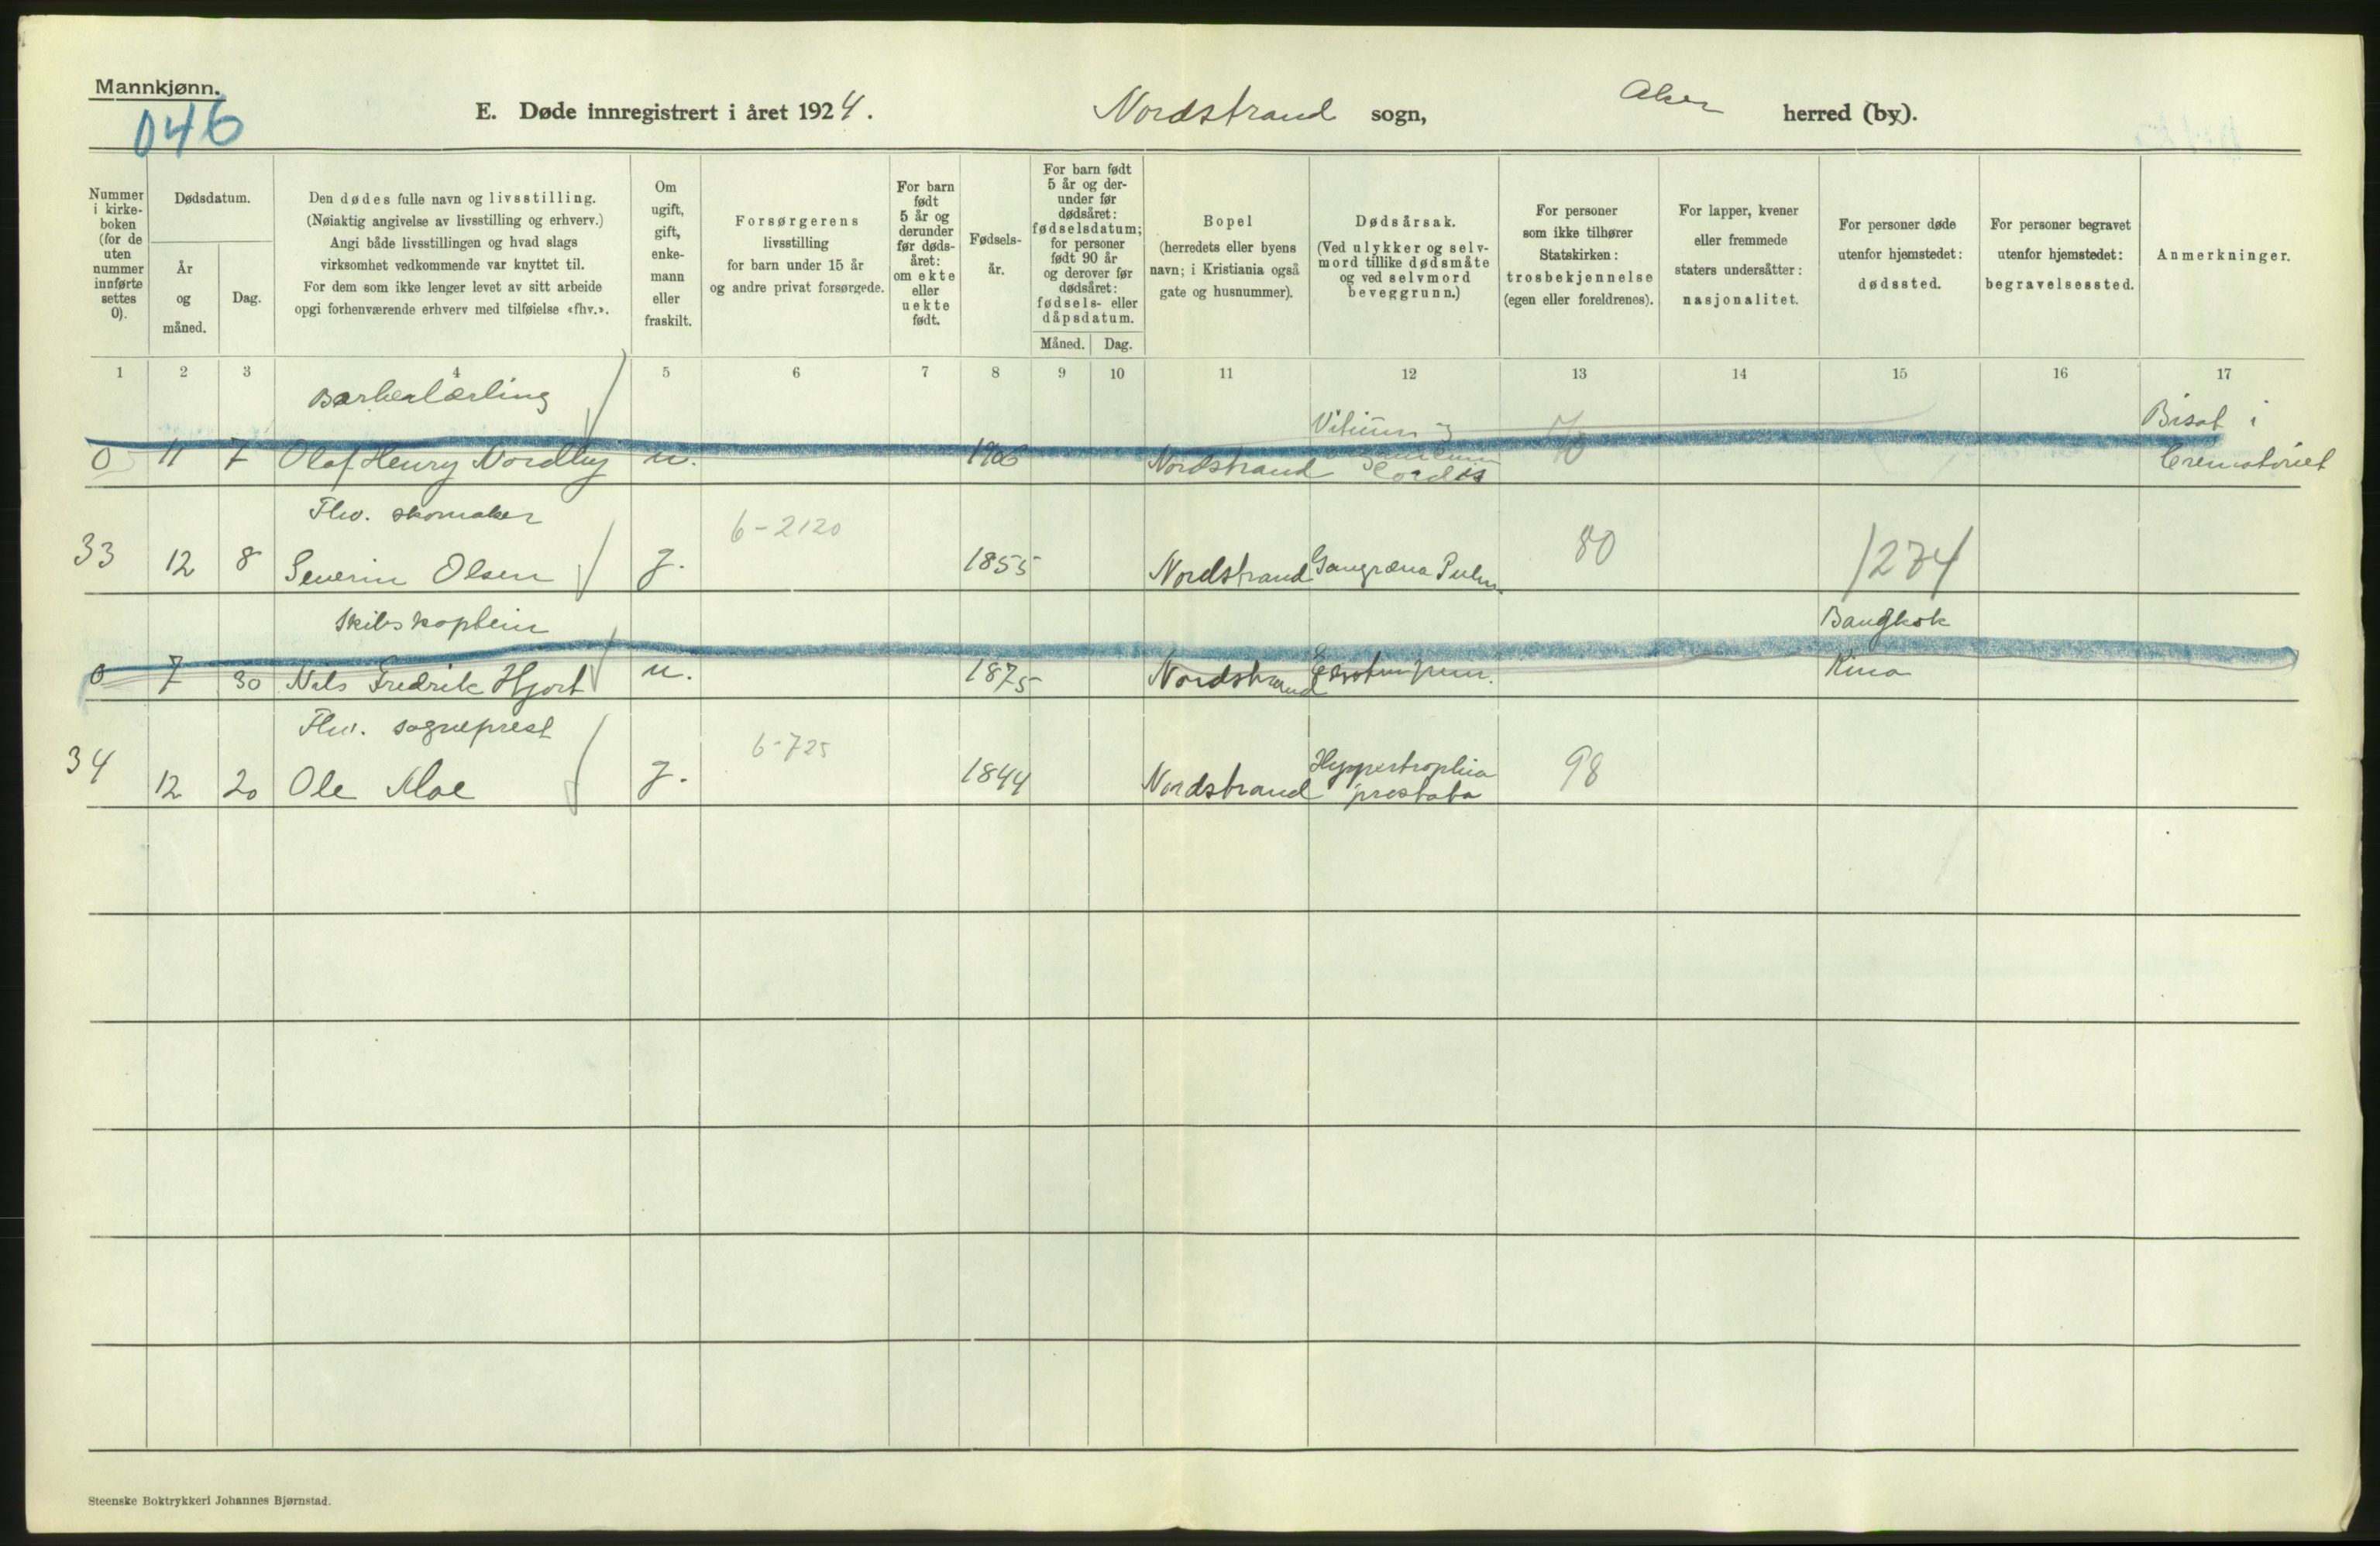 Mannkjønn.
046
E. Døde innregistrert i året 1924.
Nordstrand sogn,
Aker herred (by).
Nummer i kirke-boken (for de uten nummer innførte settes 0).
Dødsdatum.
År og måned.
Dag.
Den dødes fulle navn og livsstilling.
(Nøiaktig angivelse av livsstilling og erhverv.)
Angi både livsstillingen og hvad slags
virksomhet vedkommende var knyttet til.
For dem som ikke lenger levet av sitt arbeide
opgi forhenværende erhverv med tilføielse «fhv.».
Om ugift, gift, enke-mann eller fraskilt.
Forsørgerens
livsstilling
for barn under 15 år
og andre privat forsørgede.
For barn født 5 år og derunder før døds-året: om ekte eller uekte født.
Fødsels-år.
For barn født 5 år og der-under før dødsåret: fødselsdatum; for personer født 90 år og derover før dødsåret: fødsels- eller dåpsdatum.
Måned.
Dag.
Bopel
(herredets eller byens
navn; i Kristiania også
gate og husnummer).
Dødsårsak.
(Ved ulykker og selv-
mord tillike dødsmåte
og ved selvmord
beveggrunn.)
For personer
som ikke tilhører
Statskirken:
trosbekjennelse
(egen eller foreldrenes).
For lapper, kvener
eller fremmede
staters undersåtter:
nasjonalitet.
For personer døde
utenfor hjemstedet:
dødssted.
For personer begravet
utenfor hjemstedet:
begravelsessted.
Anmerkninger.
1 2 3 4 5 6 7 8 9 10 11 12 13 14 15 16 17
Barberlærling
Vitium
Bisat i
0 11 7 Olaf Henry Nordby u. 1906 Nordstrand Cordis 70 Crematoriet
Fhv. skomaker
6-2120
33 12 8 Severin Olsen g. 1855 Nordstrand Gangræna Pulm. 80 1274
Skibskaptein
Bangkok
0 7 30 Nils Fredrik Hjort u. 1875 Nordstrand Kina
Fhv. sogneprest
6-725
34 12 20 Ole Moe g. 1844 Nordstrand Hyppertrophia prostata 98
Steenske Boktrykkeri Johannes Bjørnstad.